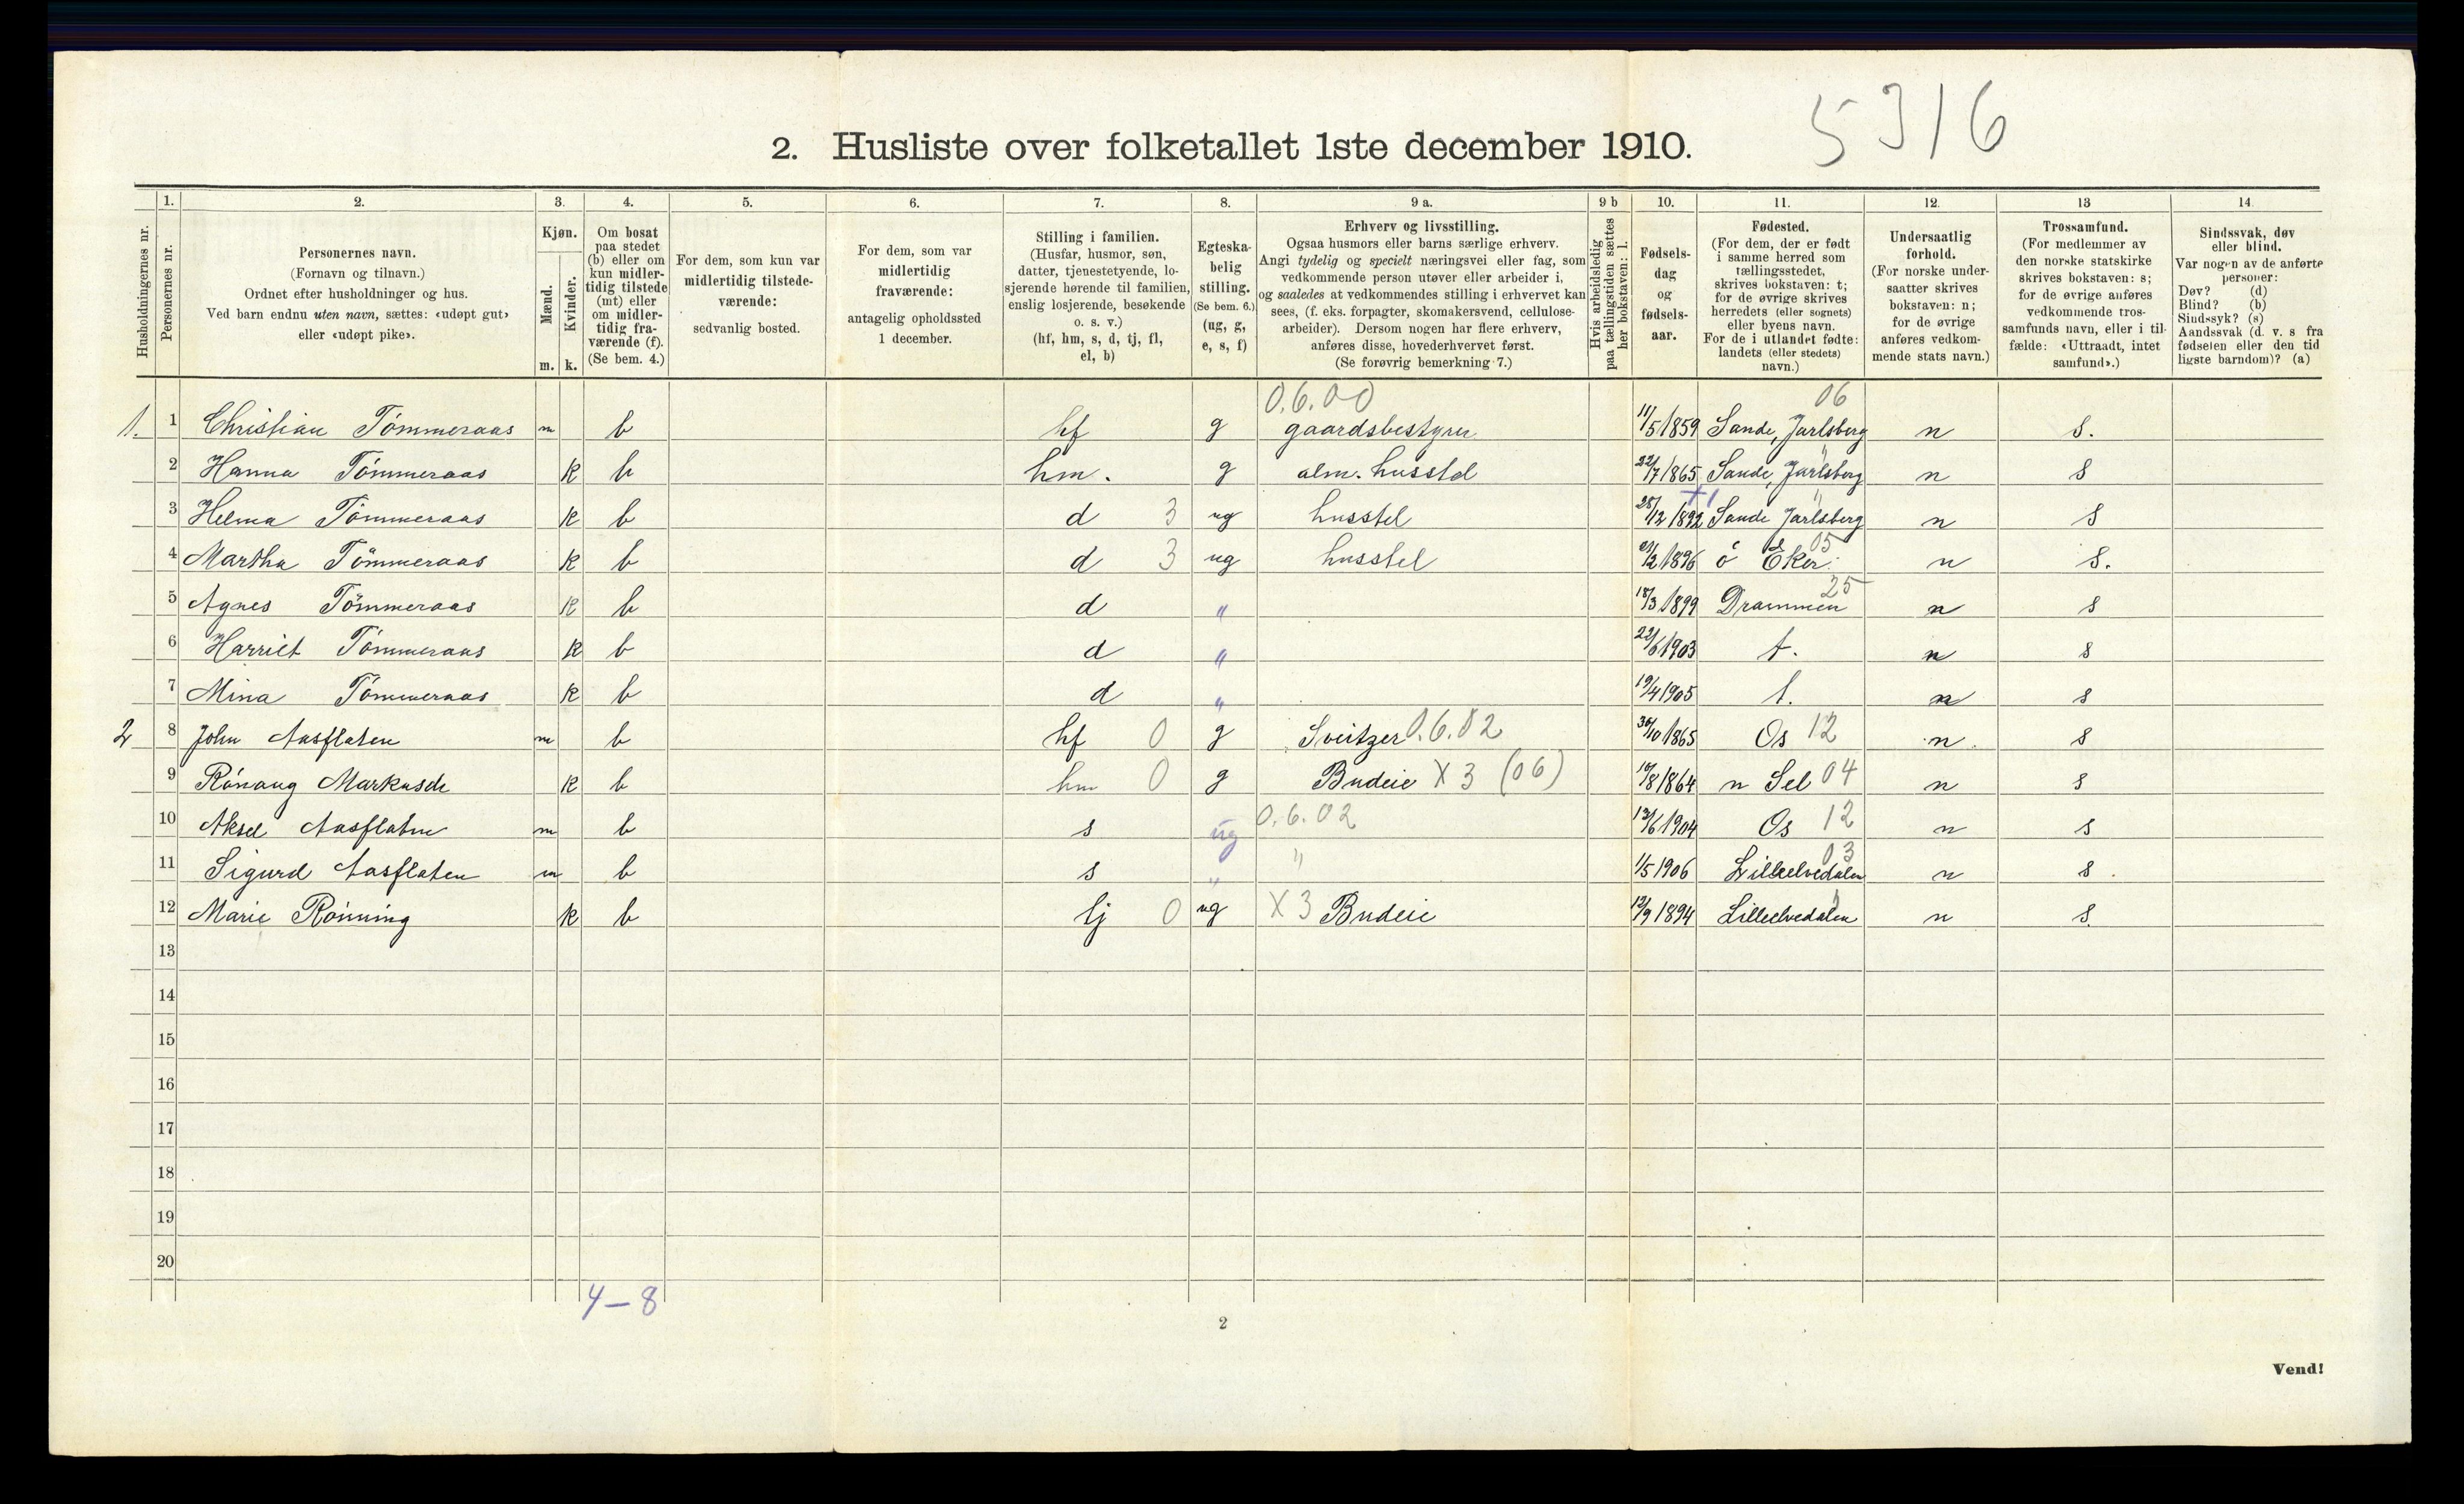 5316
2. Husliste over folketallet 1ste december 1910.
Husholdningernes nr.
1. Personernes nr.
2. Personernes navn. (Fornavn og tilnavn.) Ordnet efter husholdninger og hus. Ved barn endnu uten navn, sættes: «udøpt gut» eller «udøpt pike».
3. Kjøn. Mænd. m. Kvinder. k.
4. Om bosat paa stedet (b) eller om kun midlertidig tilstede (mt) eller om midlertidig fraværende (f). (Se bem. 4.)
5. For dem, som kun var midlertidig tilstedeværende: sedvanlig bosted.
6. For dem, som var midlertidig fraværende: antagelig opholdssted 1 december.
7. Stilling i familien. (Husfar, husmor, søn, datter, tjenestetyende, losjerende hørende til familien, enslig losjerende, besøkende o. s. v.) (hf, hm, s, d, tj, fl, el, b)
8. Egteskabelig stilling. (Se bem. 6.) (ug, g, e, s, f)
9 a. Erhverv og livsstilling. Ogsaa husmors eller barns særlige erhverv. Angi tydelig og specielt næringsvei eller fag, som vedkommende person utøver eller arbeider i, og saaledes at vedkommendes stilling i erhvervet kan sees, (f. eks. forpagter, skomakersvend, cellulosearbeider). Dersom nogen har flere erhverv, anføres disse, hovederhvervet først. (Se forøvrig bemerkning 7.)
9 b Hvis arbeidsledig paa tællingstiden sættes her bokstaven: l.
10. Fødselsdag og fødselsaar.
11. Fødested. (For dem, der er født i samme herred som tællingsstedet, skrives bokstaven: t; for de øvrige skrives herredets (eller sognets) eller byens navn. For de i utlandet fødte: landets (eller stedets) navn.)
12. Undersaatlig forhold. (For norske undersaatter skrives bokstaven: n; for de øvrige anføres vedkommende stats navn.)
13 Trossamfund. (For medlemmer av den norske statskirke skrives bokstaven: s; for de øvrige anføres vedkommende trossamfunds navn, eller i tilfælde: «Uttraadt, intet samfund».)
14 Sindssvak, døv eller blind. Var nogen av de anførte personer: Døv? (d) Blind? (b) Sindssyk? (s) Aandssvak (d. v. s fra fødselen eller den tid ligste barndom)? (a)
0.6.00 06
1. 1 Christian Tømmeraas m b hf g gaardsbestyrer 11/5 1859 Sande, Jarlsberg n s.
2 Hanna Tømmeraas k b hm. g alm. husstel 22/7 1865 Sande, Jarlsberg " n s
3 Helma Tømmeraas k b d 3 ug husstel 28/12 1892 Sande Jarlsberg " n s
4 Martha Tømmeraas k b d 3 ug husstel 1896 ø Eker. 05 n s.
5 Agnes Tømmeraas k b d " 18/3 1899 Drammen 25 n s
6 Harriet Tømmeraas k b d " 22/6 1903 t. n s
7 Mina Tømmeraas k b d " 19/4 1905 t. n s
2 8 John Aasflaten m b hf 0 g Sveitzer 0.6.02 30/10 1865 Os 12 n. s
9 Rønaug Markusdr k b hm 0 g Budeie X 3 (06) 19/8 1864 n Sel 04 n s
10 Aksel Aasflaten m b s ug 0.6.02 13/6 1904 Os 12 n s
11 Sigurd Aasflaten m b s " " 1/5 1906 Lilleelvedalen 03 n s.
12 Marie Rønning k b tj 0 ug X 3 Budeie 12/9 1894 Lilleelvedalen n s.
13
14
15
16
17
18
19
20
4–8
2
Vend!